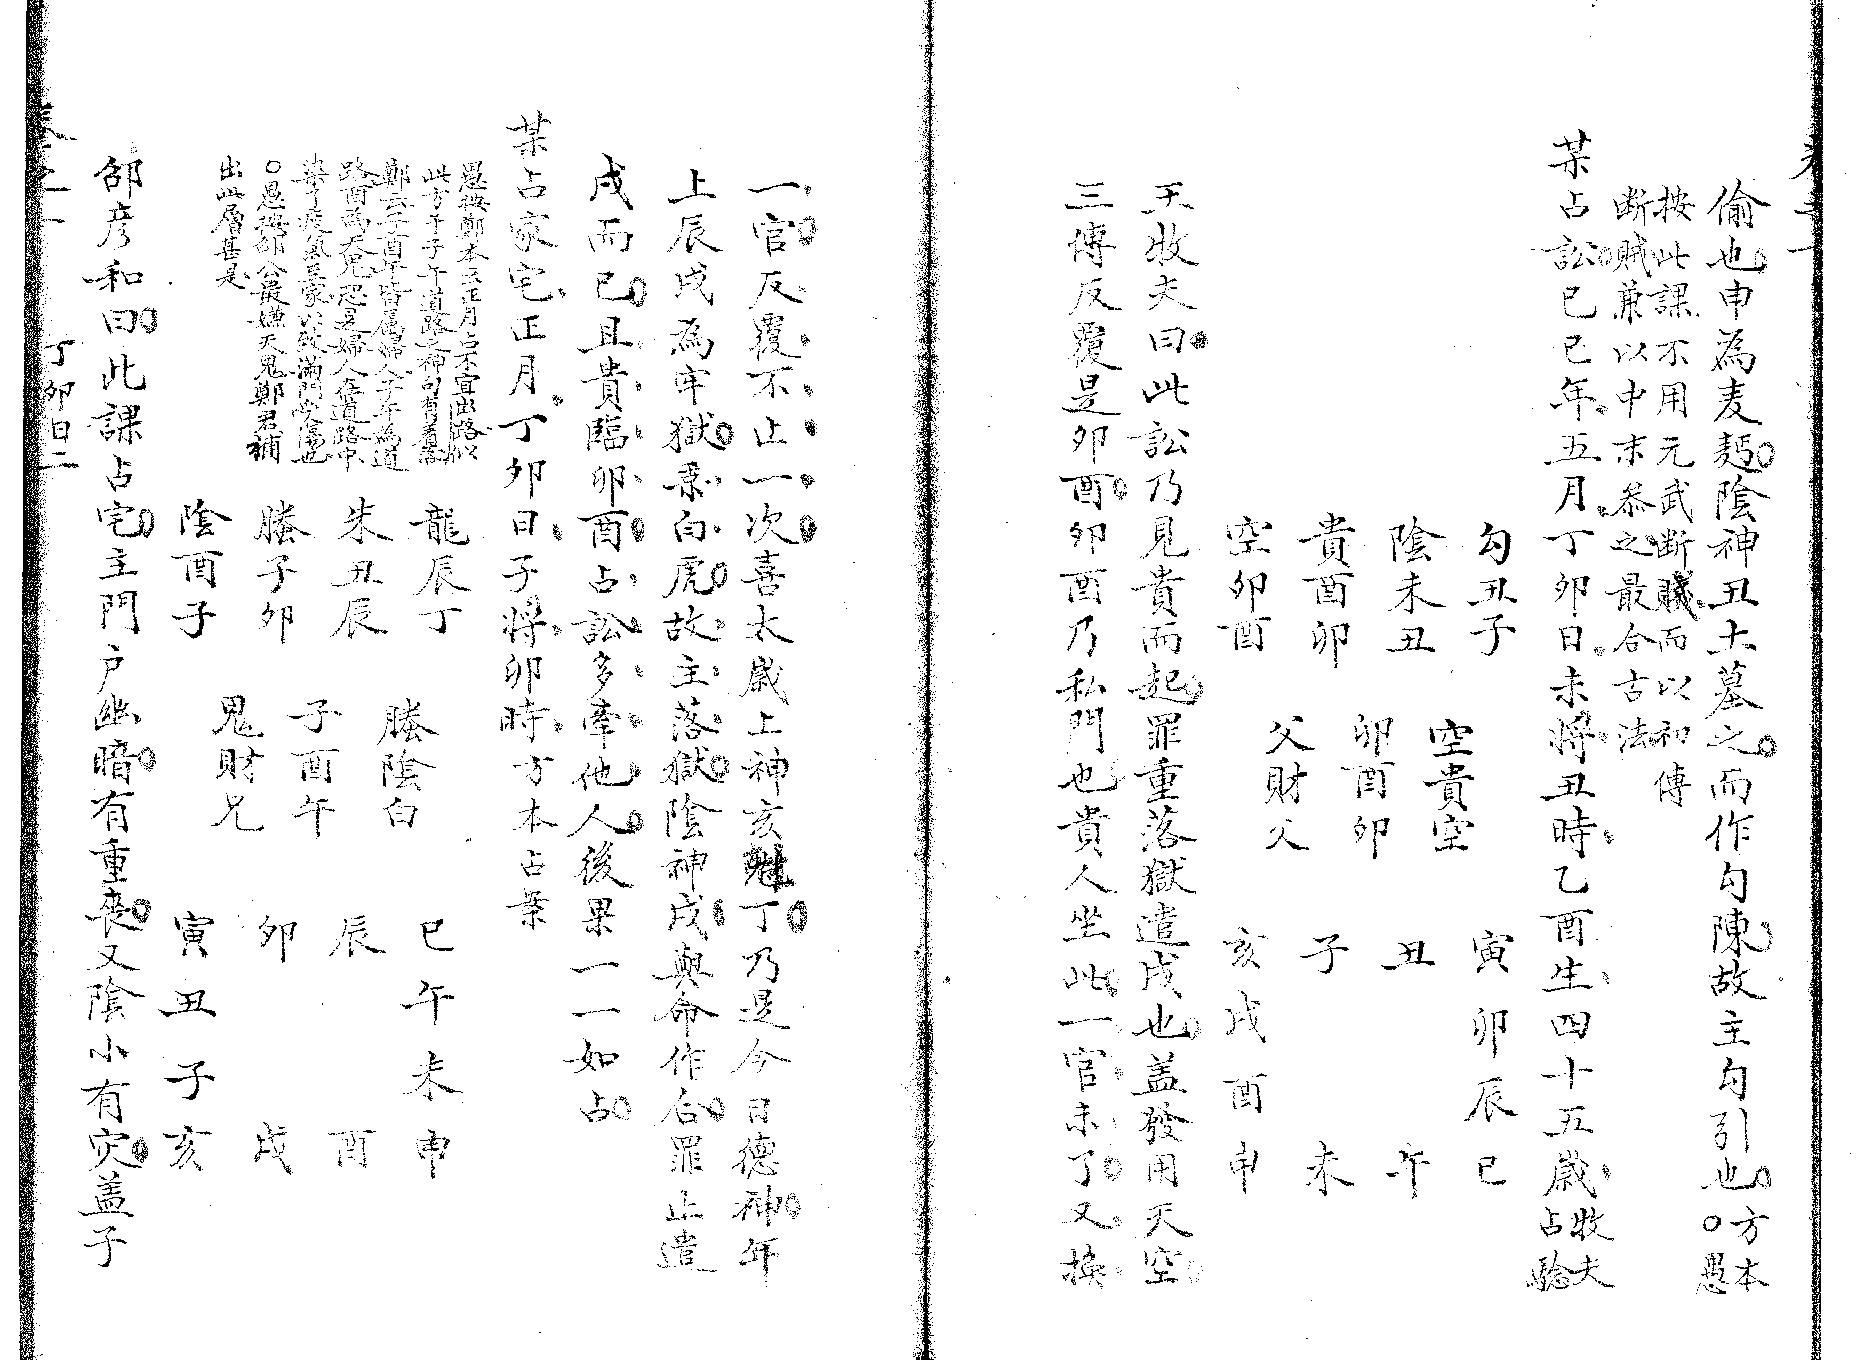 偷也申為麦麪陰神丑土墓之而作勾陳故主勾引也方本○愚
按此課不用元武断賊而以初傳
断賊兼以中末叅之最合古法
某占訟己巳年五月丁卯日未將丑時乙酉生四十五歲牧夫占驗
勾丑子
陰未丑
貴酉卯
空卯酉
空貴空
卯酉卯
父財父
寅卯辰巳
丑 午
子 未
亥戌酉申
王牧夫曰此訟乃見貴而起罪重落獄遣戍也盖發用天空
三傳反覆是卯酉卯酉乃私門也貴人坐此一官未了又換
一官反覆不止一次喜太歲上神亥丁乃是今日德神年
上辰戌為牢獄乗白虎故主落獄陰神戌與命作合罪止遣
戍而已且貴臨卯酉占訟多牽他人後果一一如占
某占家宅正月丁卯日子將卯時方本占案
愚按鄭本云正月占不宜出路以
此方子子午道路之神旬有
鄭云子酉皆属婦人子午為道
路酉為天鬼恐是婦人在道路中
染了疫氣至家以致滿門受傷也
○愚按邵公最嫌天鬼鄭君補
出此層甚是
龍辰丁
朱丑辰
螣子卯
陰酉子
螣陰白
子酉午
鬼財兄
巳午未申
辰 酉
卯 戌
寅丑子亥
邵彦和曰此課占宅主門户幽暗有重喪又陰小有灾盖子
丁卯日二